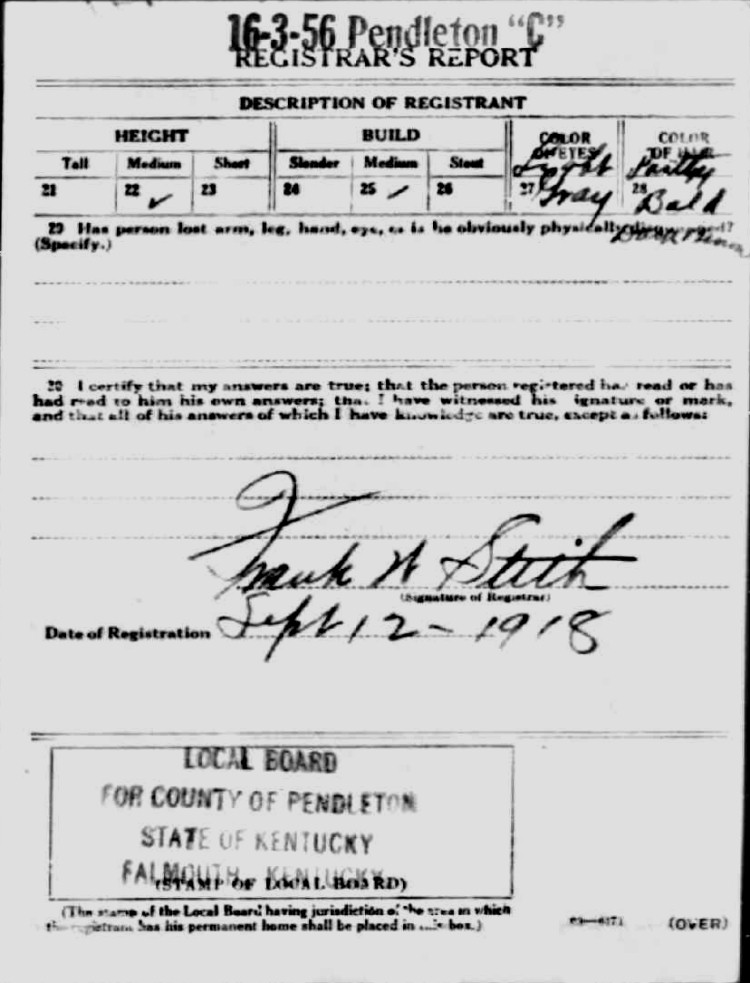 16-3-56 Pendleton "C"
REGISTRAR'S REPORT
DESCRIPTION OF REGISTRANT
HEIGHT BUILD COLOR OF EYES COLOR OF HAIR
Tall Medium Short Slender Medium Stout
21 22 ✓ 23 24 25 ✓ 26 27 Light Gray 28 Partly Bald
Dark Brown
29 Has person lost arm, leg, hand, eye, or is he obviously physically
(Specify.)
30 I certify that my answers are true; that the person registered has read or has
had read to him his own answers; that I have witnessed his signature or mark,
and that all of his answers of which I have knowledge are true, except as follows:
Frank W Stith
(Signature of Registrar)
Date of Registration Sept 12-1918
LOCAL BOARD
FOR COUNTY OF PENDLETON
STATE OF KENTUCKY
FALMOUTH, KENTUCKY
(STAMP OF LOCAL BOARD)
(The stamp of the Local Board having jurisdiction of the area in which
the registrant has his permanent home shall be placed in this box.)
03—6171 (OVER)